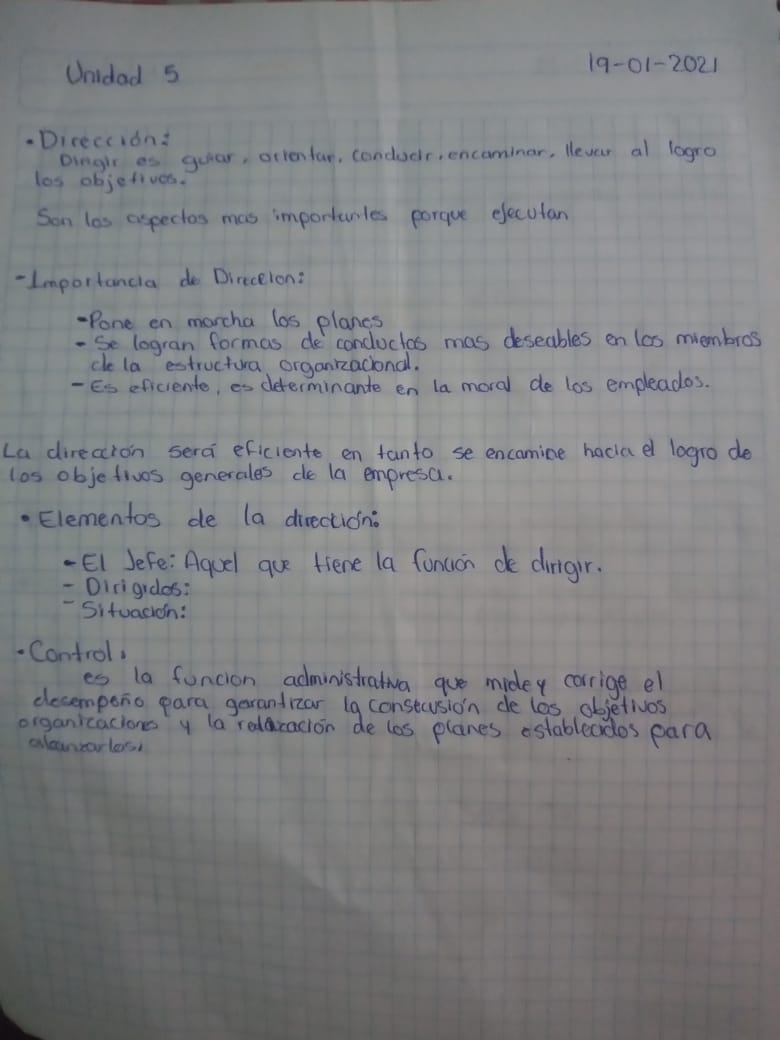 Unidad 5
19-01-2021
• Dirección:
Dirigir es guiar, orientar, conducir, encaminar, llevar al logro
los objetivos.
Son los aspectos mas importantes porque ejecutan
- Importancia de Direccion:
- Pone en marcha los planes
- Se logran formas de conductas mas deseables en los miembros
de la estructura organizacional.
- Es eficiente, es determinante en la moral de los empleados.
La dirección será eficiente en tanto se encamine hacia el logro de
los objetivos generales de la empresa.
• Elementos de la dirección:
- El Jefe: Aquel que tiene la función de dirigir.
- Dirigidos:
- Situación:
• Control.
es la funcion administrativa que mide y corrige el
desempeño para garantizar la consecusión de los objetivos
organizaciones y la de los planes establecidos para
alcanzarlos.